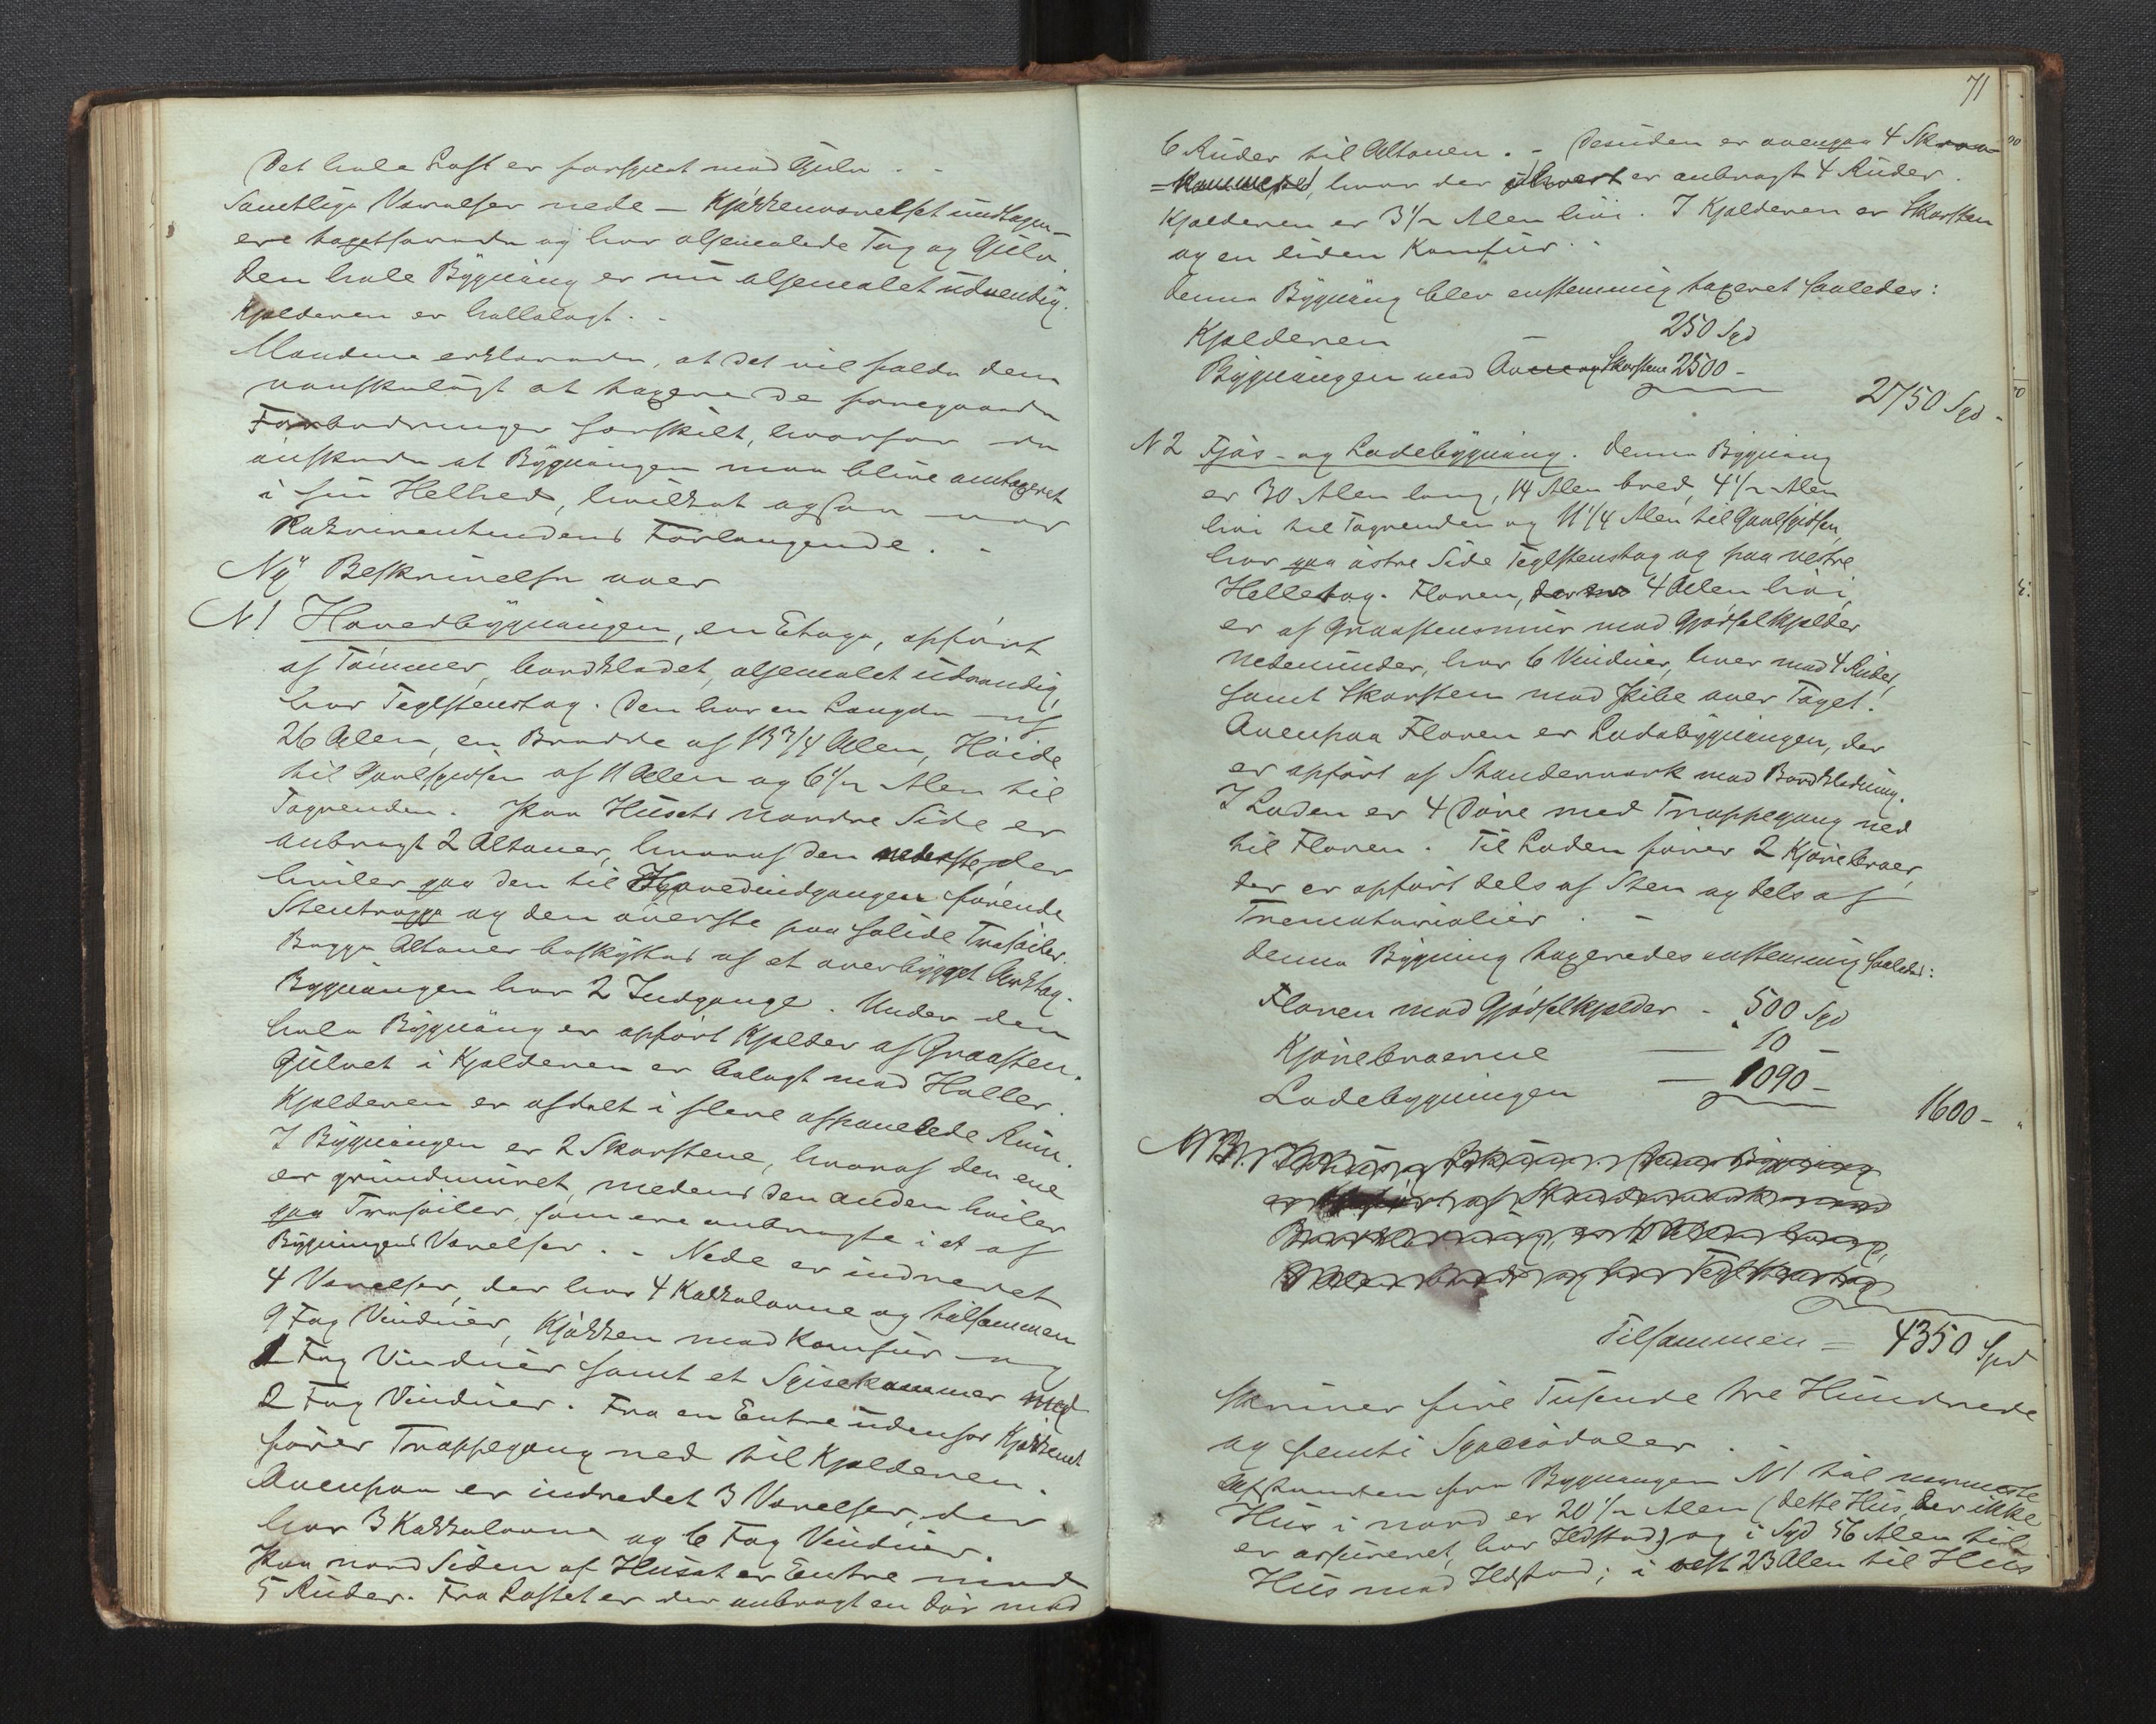 Det hele Loft er forsynet med Gulv. -
Samtlige Værelser nede - Kjøkkenværelset undtagen -
ere tapetserede og har oljemalede Tag og Gulv.
Den hele Bygning er nu oljemalet udvendig.
Kjelderen er hellelagt. -
Mændene erklærede, at det vil falde dem
vanskeligt at taxere de foregaaede
Forbedringer særskilt, hvorfor de
ønskede at Bygningen maa blive omtaxeret
i sin Helhed, hvilket ogsaa var
Rekvirentendens Forlangende. -
Ny Beskrivelse over
N 1 Hovedbygningen, en Etage, opført
af Tømmer, bordklædet, oljemalet udvendig,
har Teglstenstag. Den har en Længde af
26 Alen, en Bredde af 13 3/4 Alen, Høide
til Gavlspidsen af 11 Alen og 6 1/2 Alen til
Tagrenden. Paa Husets nordre Side er
anbragt 2 Altaner, hvoraf den nederste, der
hviler paa den til Hovedindgangen førende
Stentrappe og den øverste paa solide Træsøiler.
Begge Altaner beskyttes af et overbygget Arktag.
Bygningen har 2 Indgange. Under den
hele Bygning er opført Kjelder af Graasten.
Gulvet i Kjelderen er belagt med Heller.
Kjelderen er afdelt i flere afpanelede Rum.
I Bygningen er 2 Skorstene, hvoraf den ene
er grundmuret, medens den anden hviler
paa Træsøiler, som ere anbragte i et af
Bygningens Værelser. - Nede er indredet
4 Værelser, der har 4 Kakkelovne og tilsammen
9 Fag Vinduer, Kjøkken med Komfur og
1 Fag Vinduer samt et Spisekammer med
2 Fag Vinduer. Fra en Entre udenfor Kjøkkenet
fører Trappegang ned til Kjelderen.
Ovenpaa er indredet 3 Værelser, der
har 3 Kakkelovne og 6 Fag Vinduer.
Paa nord Siden af Huset er Entre med
5 Ruder. Fra Loftet er der anbragt en Dør med
71
6 Ruder til Altanen. - Desuden er ovenpaa 4 Skraa-
=kammere, hvor der i hvert er anbragt 4 Ruder.
Kjelderen er 3 1/2 Alen høi. I Kjelderen er Skorsten
og en liden Komfur. -
Denne Bygning blev enstemmig taxeret saaledes:
Kjelderen 250 Spd
Bygningen med Ovne og Skorstene 2500 -
2750 Spd -
N 2 Fjøs- og Ladebygning. Denne Bygning
er 30 Alen lang, 14 Alen bred, 4 1/2 Alen
høi til Tagrenden og 11 1/4 Alen til Gavlspidsen,
har paa østre Side Teglstenstag og paa vestre
Helletag. Floren, der er 4 Alen høi,
er af Graastensmur med Gjødselkjelder
nedenunder, har 6 Vinduer, hver med 4 Ruder,
samt Skorsten med Pibe over Taget.
Ovenpaa Floren er Ladebygningen, der
er opført af Standerværk med Bordklædning.
I Laden er 4 Døre med Trappegang ned
til Floren. Til Laden fører 2 Kjørebroer,
der er opført dels af Sten og dels af
Trematerialier. -
Denne Bygning taxeredes enstemmig saaledes:
Floren med Gjødselkjelder - 500 Spd
Kjørebroerne — 10 -
Ladebygningen — 1090 -
1600 -
Bygning
er opført af Standerværk med
Bordklædning, er Alen lang,
Alen bred og har Teglstenstag
Tilsammen = 4350 Spd
skriver fire Tusende tre Hundrede
og femti Speciedaler.
Afstanden fra Bygningen N 1 til nærmeste
Hus i nord er 20 1/2 Alen (dette Hus, der ikke
er assureret, har Ildsted) og i Syd 56 Alen til
Hus med Ildsted; i vest 23 Alen til Hus